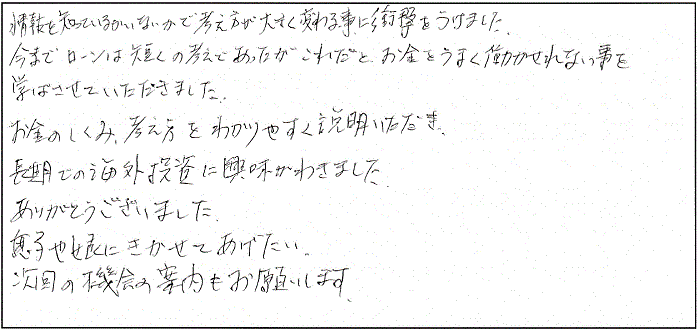 情報を知っているかいないかで考え方が大きく変わる事に衝撃をうけました。
今までローンは短くの考えであったがこれだとお金をうまく働かせれない事を
学ばさせていただきました。
お金のしくみ、考え方をわかりやすく説明いただき、
長期での海外投資に興味がわきました。
ありがとうございました。
息子や娘にきかせてあげたい。
次回の機会の案内もお願いします。